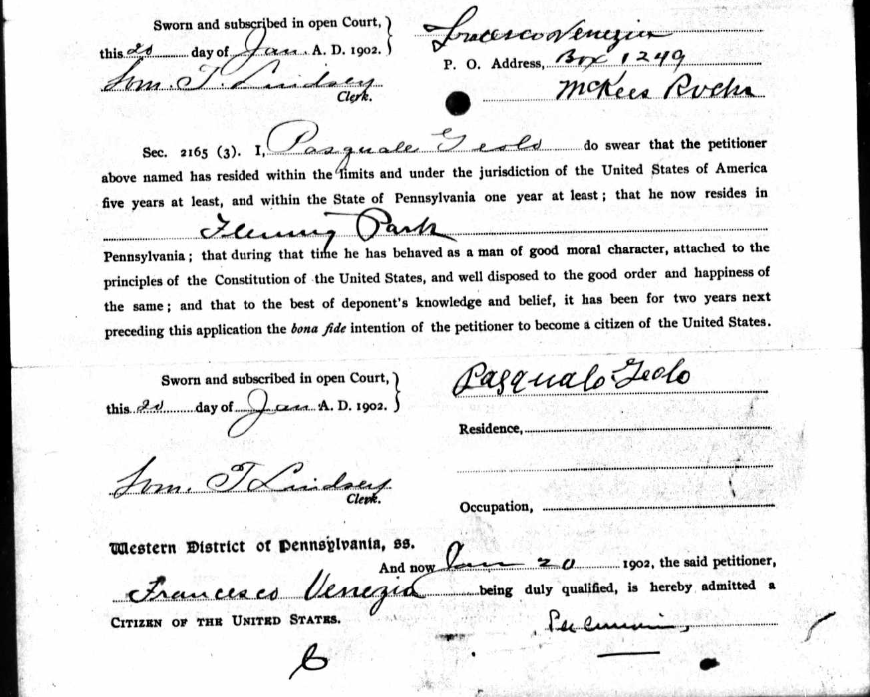 Sworn and subscribed in open Court,
this 20 day of Jan. A. D. 1902.
Wm. T. Lindsey
Clerk.
Francesco Venezia
P. O. Address, Box 1249
McKees Rocks
Sec. 2165 (3). I, Pasquale Geolo do swear that the petitioner
above named has resided within the limits and under the jurisdiction of the United States of America
five years at least, and within the State of Pennsylvania one year at least; that he now resides in
Fleming Park
Pennsylvania; that during that time he has behaved as a man of good moral character, attached to the
principles of the Constitution of the United States, and well disposed to the good order and happiness of
the same; and that to the best of deponent's knowledge and belief, it has been for two years next
preceding this application the bona fide intention of the petitioner to become a citizen of the United States.
Sworn and subscribed in open Court,
this 20 day of Jan A. D. 1902.
Wm. T Lindsey
Clerk.
Pasqualo Geolo
Residence,
Occupation,
Western District of Pennsylvania, ss.
And now Jan 20 1902, the said petitioner,
Francesco Venezia being duly qualified, is hereby admitted a
CITIZEN OF THE UNITED STATES.
Per Curiam,